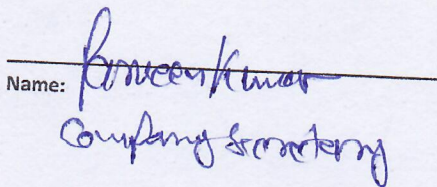 Name: Parveen Kumar
Company Secretary